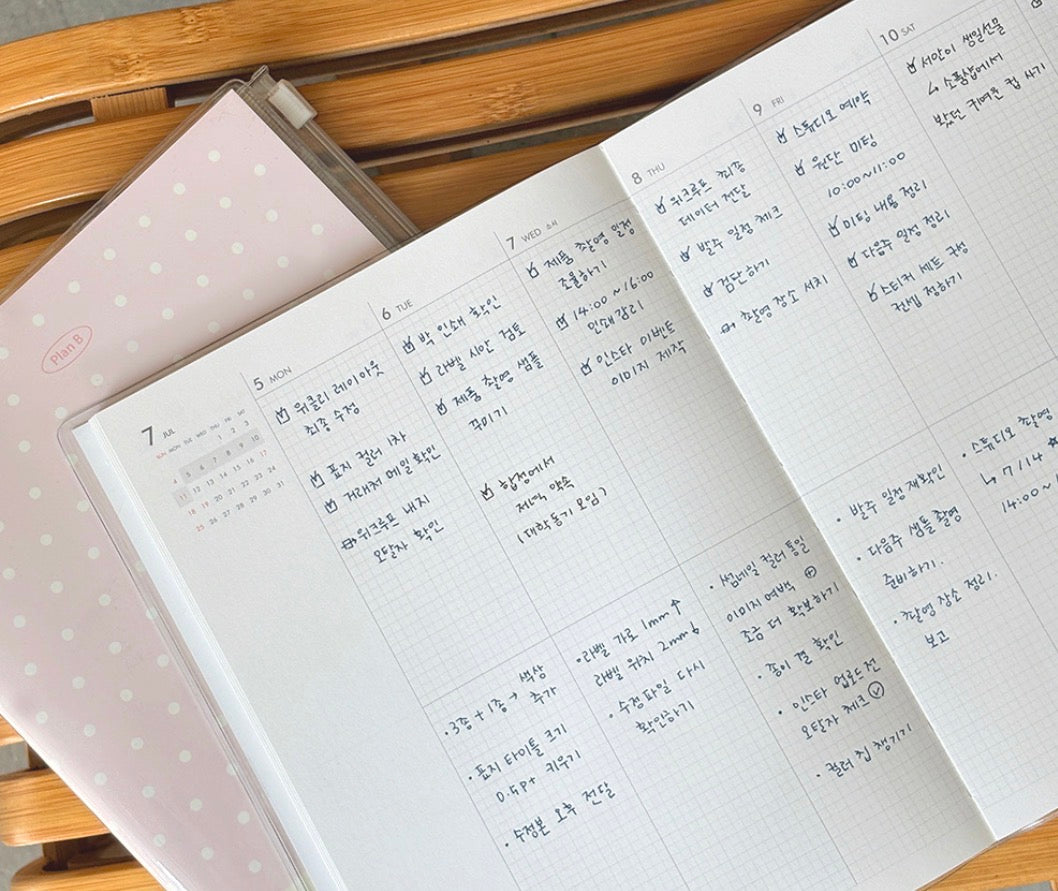 Plan B
7 JUL
SUN MON TUE WED THU FRI SAT
1 2 3
4 5 6 7 8 9 10
11 12 13 14 15 16 17
18 19 20 21 22 23 24
25 26 27 28 29 30 31
5 MON
위클리 레이아웃
최종 수정
표지 컬러 1차
거래처 메일 확인
위크루프 내지
오탈자 확인
• 3종 + 1종 → 색상
추가
• 표지 타이틀 크기
0.5pt 키우기
• 수정본 오후 전달
6 TUE
박 인쇄 확인
라벨 시안 검토
제품 촬영 샘플
꾸미기
합정에서
저녁 약속
(대학동기 모임)
• 라벨 가로 1mm ↑
라벨 위치 2mm
• 수정파일 다시
확인하기
7 WED 소서
제품 촬영 일정
조율하기
14:00 ~ 16:00
인쇄감리
인스타 이벤트
이미지 제작
• 썸네일 컬러 통일
이미지 여백 ⊕
조금 더 확보하기
• 종이 결 확인
• 인스타 업로드 전
오탈자 체크
• 컬러칩 챙기기
8 THU
위크루프 최종
데이터 전달
발주 일정 체크
검단하기
촬영 장소 서치
• 발주 일정 재확인
• 다음주 샘플 촬영
준비하기.
• 촬영 장소 정리.
보고
9 FRI
스튜디오 예약
원단 미팅
10:00~11:00
미팅 내용 정리
다음주 일정 정리
스티커 세트 구성
컨셉 정하기
• 스튜디오 촬영
↳ 7/14 ★
14:00~1
10 SAT
서안이 생일선물
↳ 소품샵에서
봤던 귀여운 컵 사기